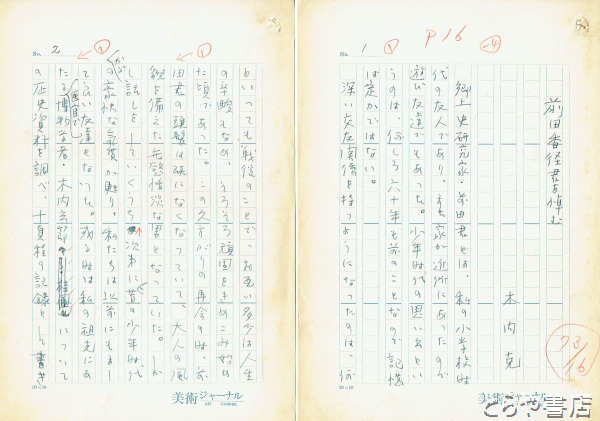 P16
No. 1
前田香径君を悼む
木内克
郷土史研究家・前田君とは、私の小学校時
代の友人であり、すも家が近所にあったので
遊び友達でもあった。少年時代の思い出とい
うのは、何しろ六十年も前のことなので記憶
は定かではない。
深い交友関係を持つようになったのは、何
73/16
20×10
美術ジャーナル
ART JOURNAL
とうや書店
No. 2
といっても戦後のことで、お互い多少は人生
の辛酸もなめ、そろそろ頑固さも
た頃であった。この久方がりの再会の時、前
田君の頭髪は既になくなっていて、大人の風
貌を備えた無慾恬淡な男となっていた。しか
し話しをしていくうち次第に昔の少年時代
の豪快な気質が甦り、私たちは以前にもまし
て良い友達となった。或る時は私の祖先にあ
たる（医官で）博物学者・木内玄節について
の歴史資料を調べ、十頁程の記録として書き
20×10
美術ジャーナル
ART JOURNAL